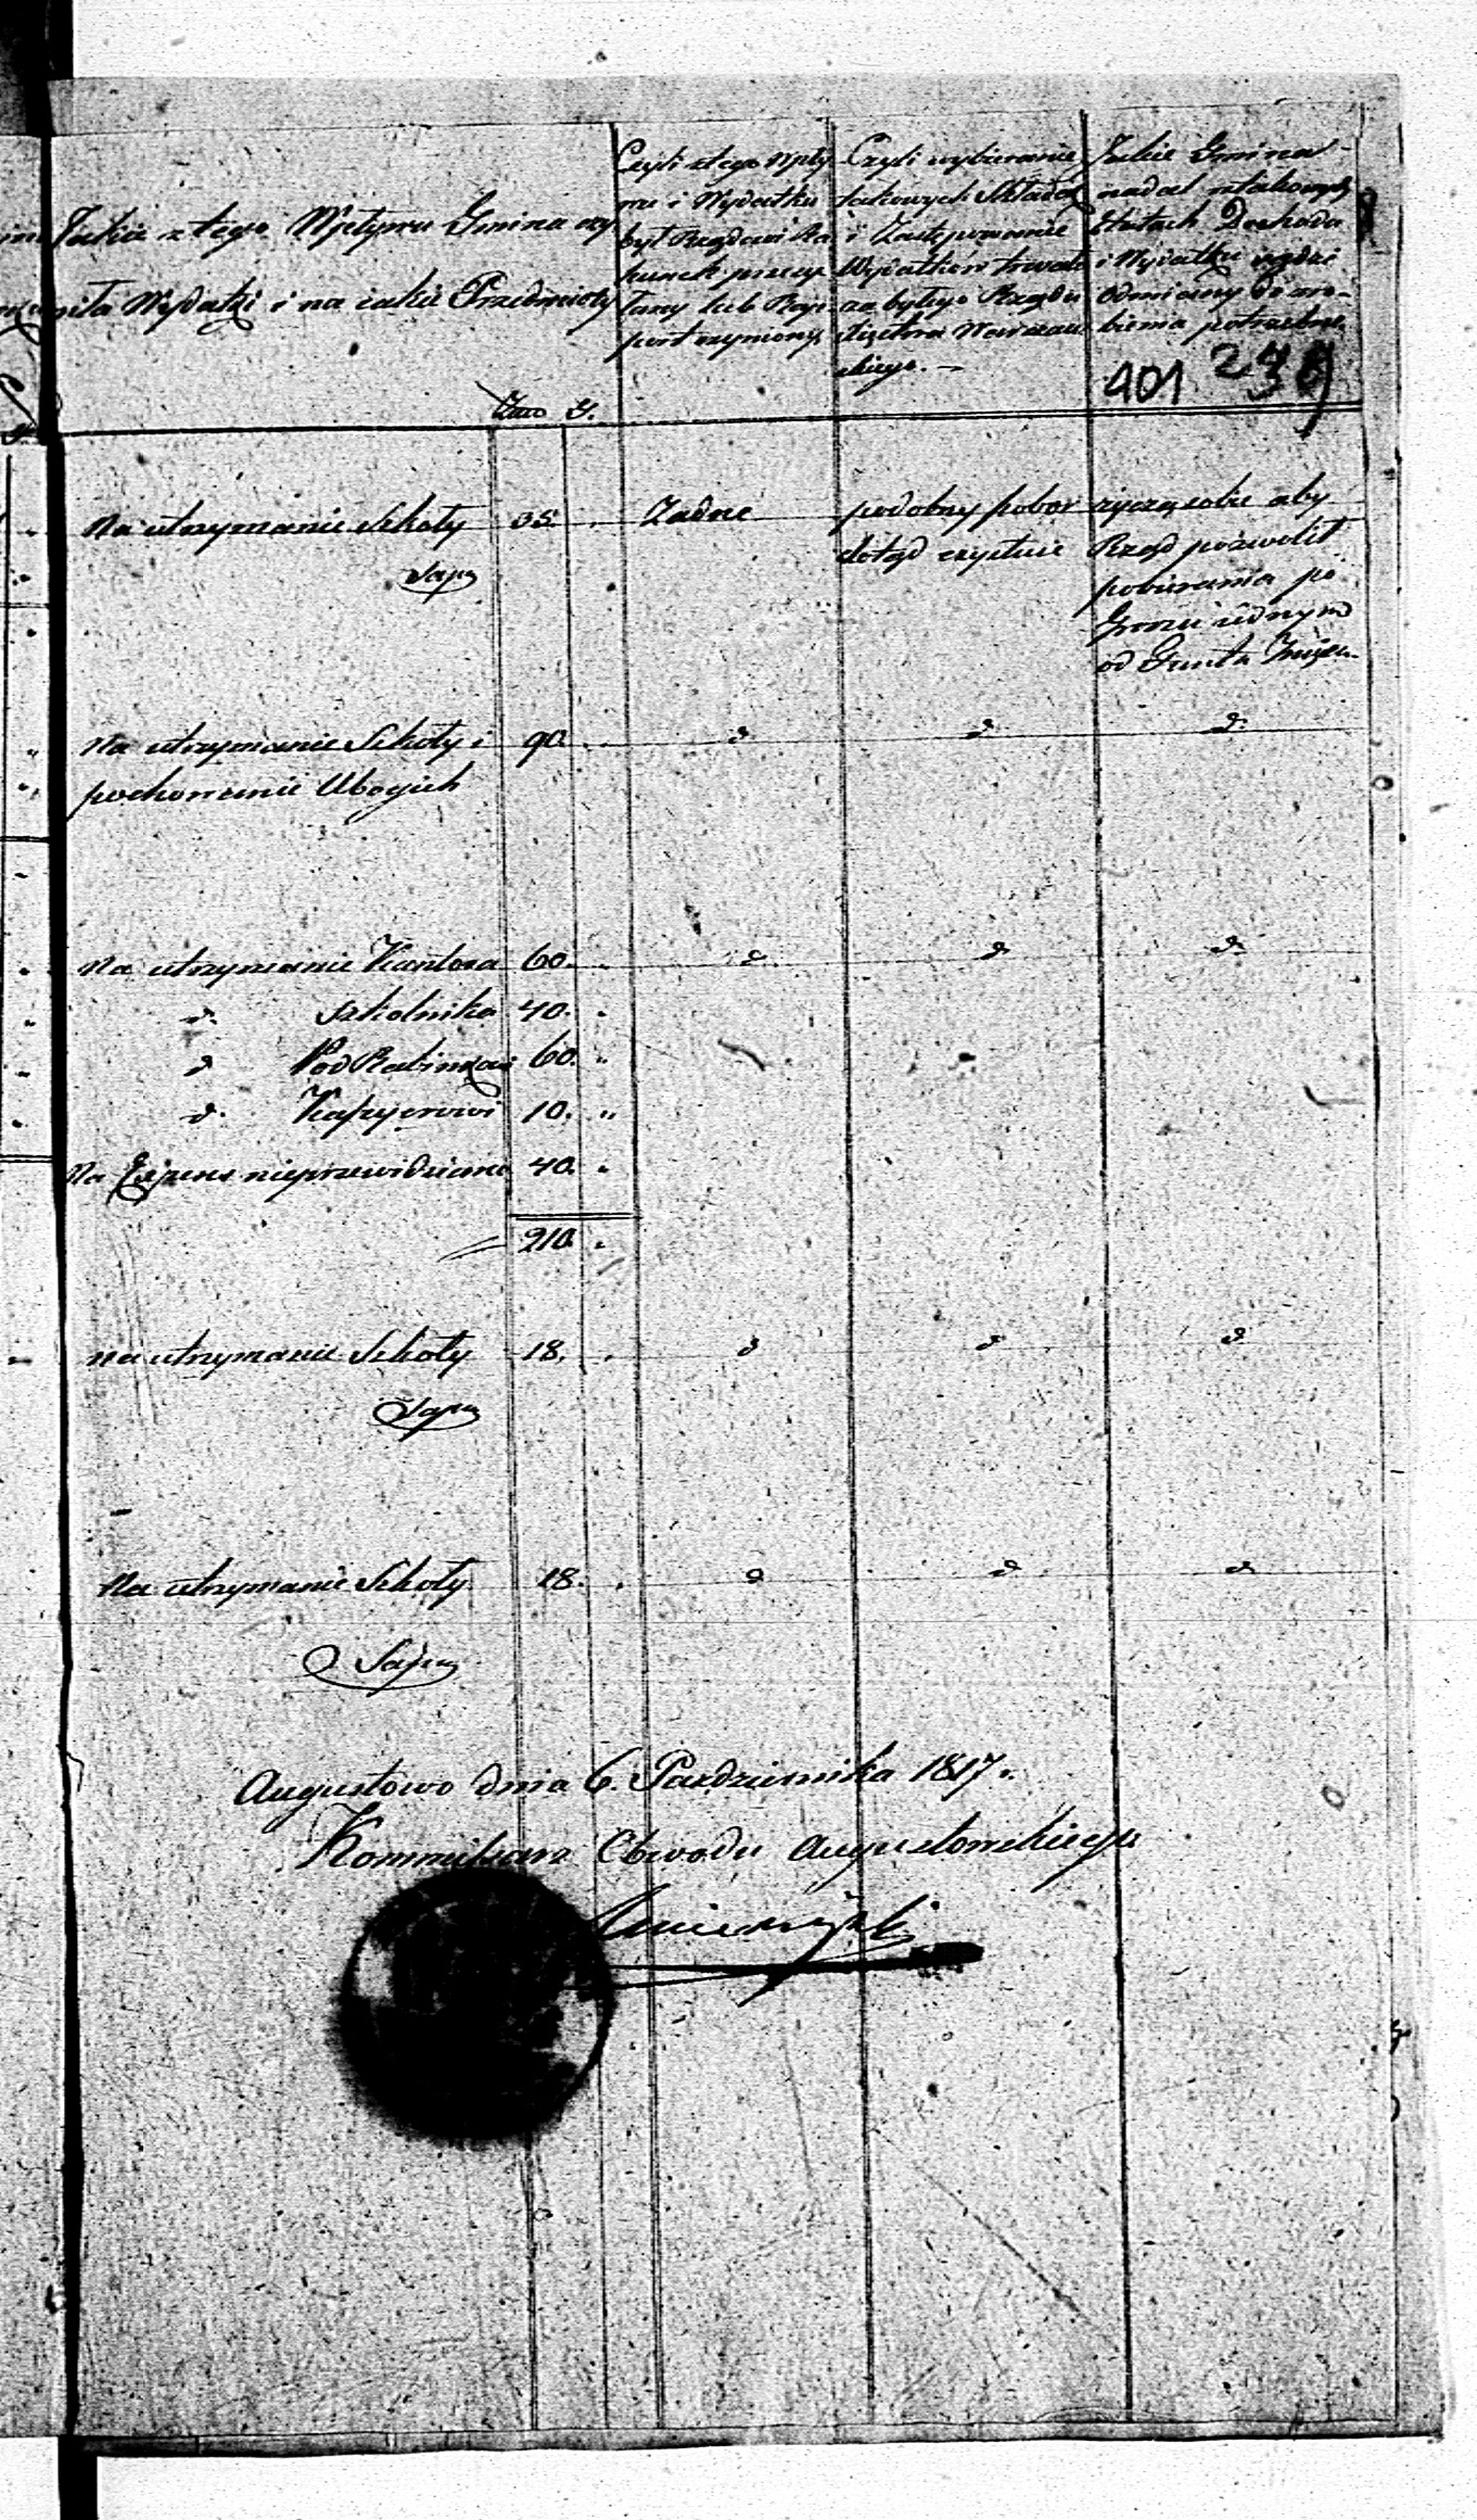 Jakie z tego Wpływu Gmina czy
niła Wydatki i na jakie Przedmioty
Złłtto g.
Czyli z tego Wpły
wu i Wydatku
był Rządowi Ra
hunek przesy
łany lub Rap
port czyniony
Czyli wybieranie
takowych Składek
i Zastępowanie
Wydatków trwało
za byłego Rządu
Xięstwa Warszaw
skiego. —
Jakie Gmina
nadal w takowych
Etatach Dochodu
i Wydatku widzi
odmiany do zro-
bienia potrzebne
401 239
Na utrzymanie Szkoły 35 . Żadne podobny pobor życzą sobie aby
dotąd exystuie Rząd pozwolił
pobierania po
Groszu iednym
od Funta Mięsa
Na utrzymanie Szkoły i 90 . d d d
pochowanie Ubogich
Na utrzymanie Kantora 60. „ d d d
d. Szkolnika 40. „
d Pod Rabinowi 60. „
d. Kassyerowi 10. „
Na Expens nieprzewidziane 40. „
210. „
Na utrzymanie Szkoły 18. . d d d
Na utrzymanie Szkoły 18. . d d d
Augustowo dnia 6. Pazdziernika 1817.
Kommissarz Obwodu Augustowskiego